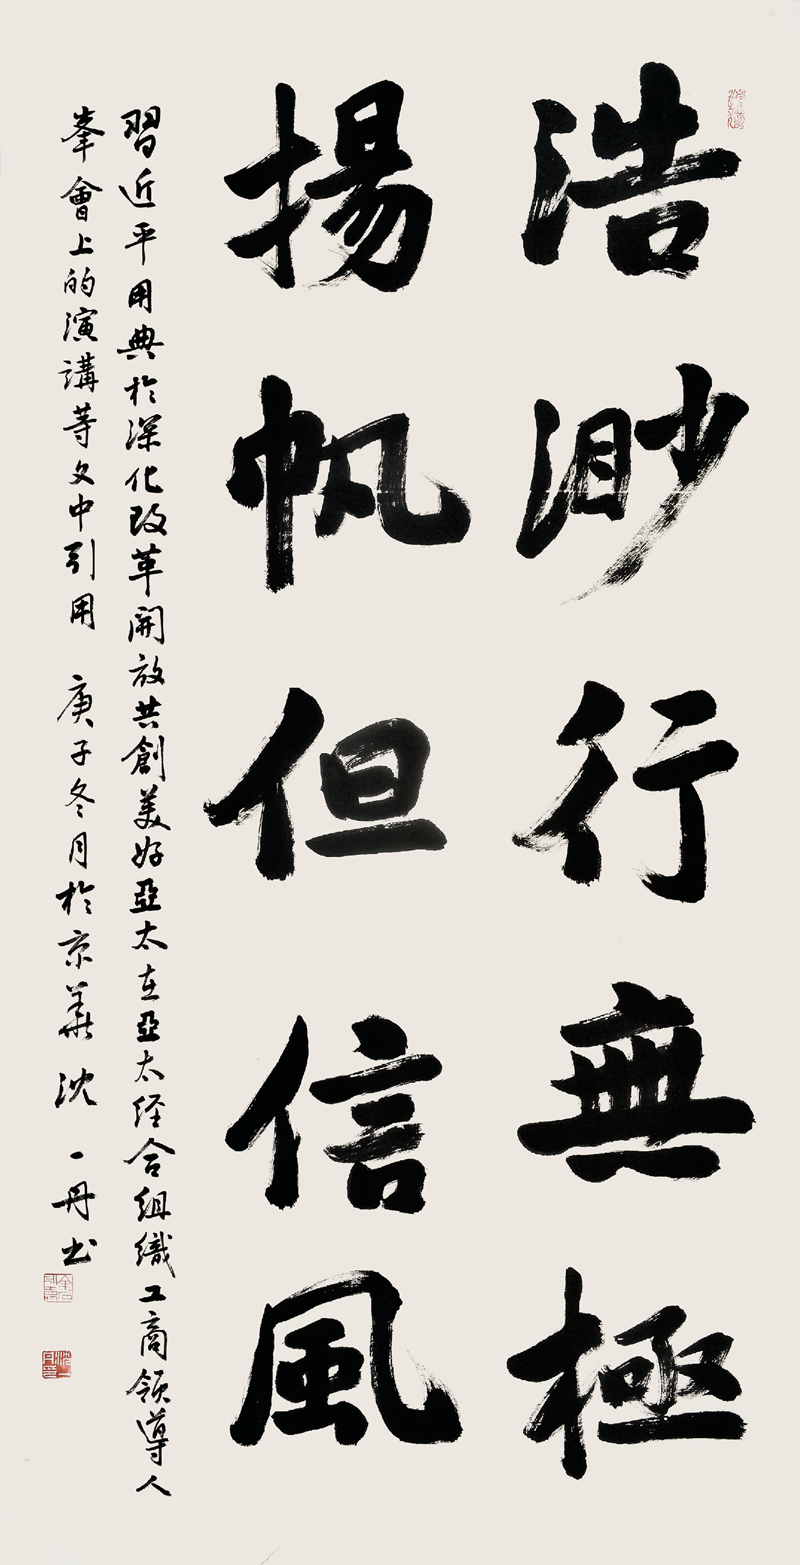 浩渺行無極
揚帆但信風
習近平用典於深化改革開放共創美好亞太在亞太经合組織工商領導人
峯會上的演講等文中引用 庚子冬月於京華 沈一丹书